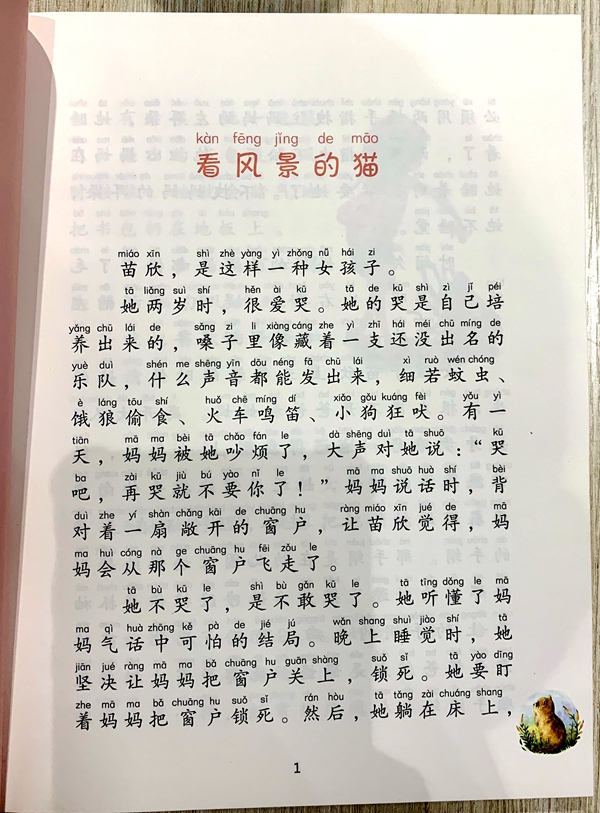 kàn fēng jǐng de māo
看风景的猫
miáo xīn shì zhè yàng yì zhǒng nǚ hái zi
苗欣，是这样一种女孩子。
tā liǎng suì shí hěn ài kū tā de kū shì zì jǐ péi
她两岁时，很爱哭。她的哭是自己培
yǎng chū lái de sǎng zi li xiàng cáng zhe yì zhī hái méi chū míng de
养出来的，嗓子里像藏着一支还没出名的
yuè duì shén me shēng yīn dōu néng fā chū lái xì ruò wén chóng
乐队，什么声音都能发出来，细若蚊虫、
è láng tōu shí huǒ chē míng dí xiǎo gǒu kuáng fèi yǒu yì
饿狼偷食、火车鸣笛、小狗狂吠。有一
tiān mā ma bèi tā chǎo fán le dà shēng duì tā shuō kū
天，妈妈被她吵烦了，大声对她说：“哭
ba zài kū jiù bú yào nǐ le mā ma shuō huà shí bèi
吧，再哭就不要你了！”妈妈说话时，背
duì zhe yí shàn chǎng kāi de chuāng hu ràng miáo xīn jué de mā
对着一扇敞开的窗户，让苗欣觉得，妈
ma huì cóng nà ge chuāng hu fēi zǒu le
妈会从那个窗户飞走了。
tā bù kū le shì bù gǎn kū le tā tīng dǒng le mā
她不哭了，是不敢哭了。她听懂了妈
ma qì huà zhōng kě pà de jié jú wǎn shang shuì jiào shí tā
妈气话中可怕的结局。晚上睡觉时，她
jiān jué ràng mā ma bǎ chuāng hu guān shàng suǒ sǐ tā yào dīng
坚决让妈妈把窗户关上，锁死。她要盯
zhe mā ma bǎ chuāng hu suǒ sǐ rán hòu tā tǎng zài chuáng shang
着妈妈把窗户锁死。然后，她躺在床上，
1